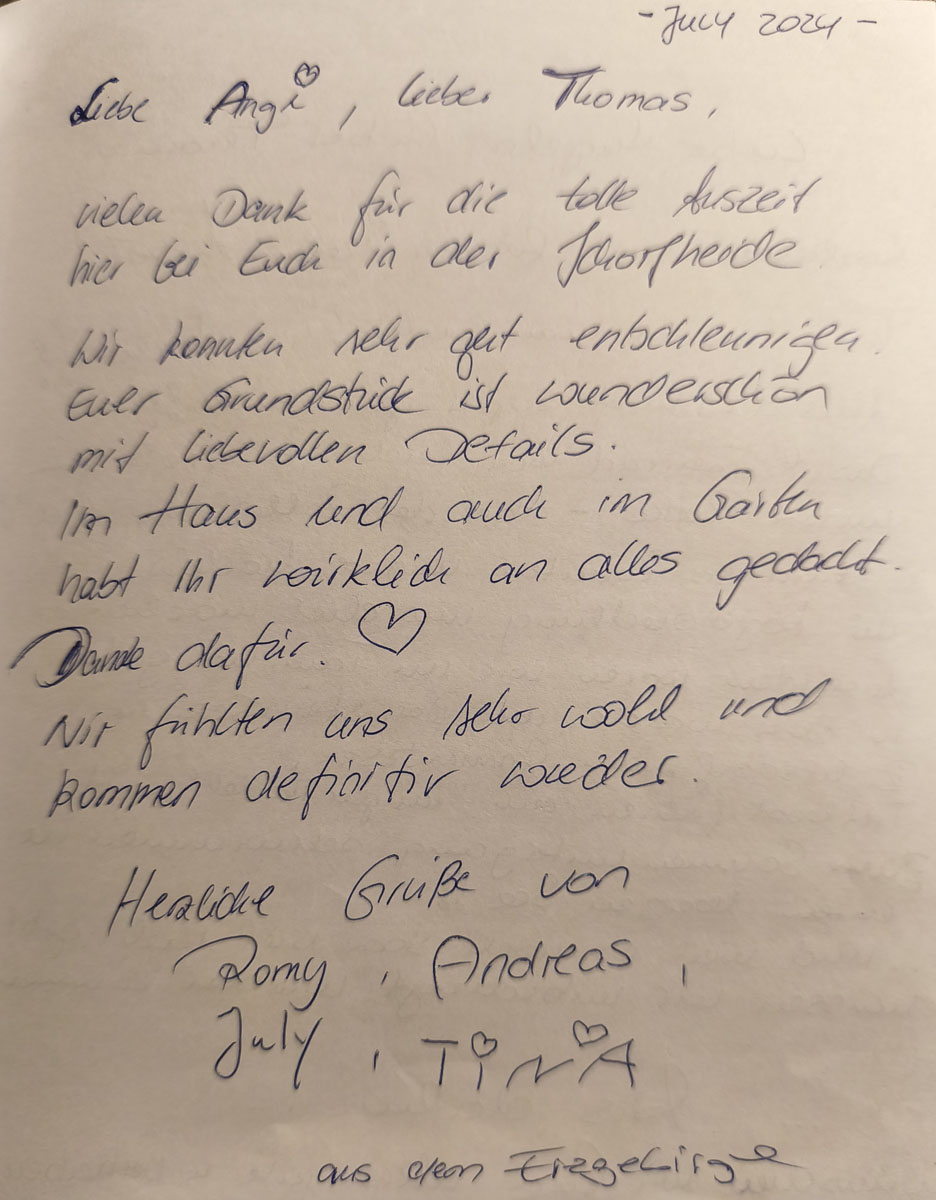 - July 2024 -
Liebe Angi, lieber Thomas,
vielen Dank für die tolle Auszeit
hier bei Euch in der Schorfheide
Wir konnten sehr gut entschleunigen.
Euer Grundstück ist wunderschön
mit liebevollen Details.
Im Haus und auch im Garten
habt Ihr wirklich an alles gedacht.
Danke dafür. ♡
Wir fühlten uns sehr wohl und
kommen definitiv wieder.
Herzliche Grüße von
Romy, Andreas,
July, TiNA
aus dem Erzgebirge